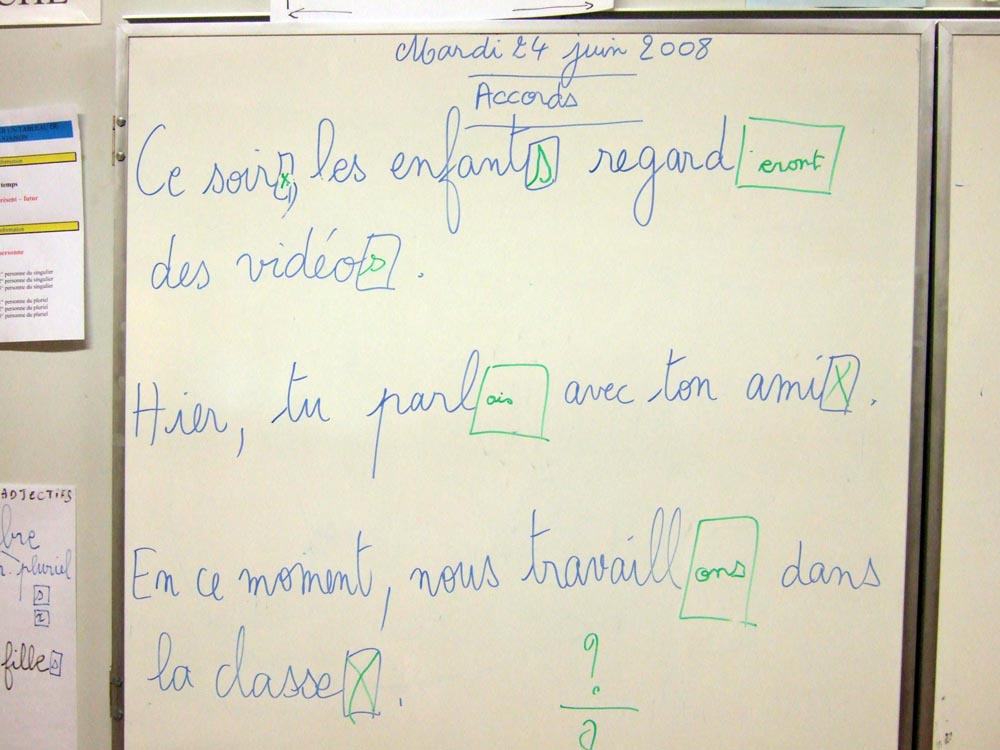 Mardi 24 juin 2008
Accords
Ce soir, les enfants regarderont
des vidéos.
Hier, tu parlais avec ton ami.
En ce moment, nous travaillons dans
la classe.
?
temps
présent – futur
personne
personne du singulier
personne du singulier
personne du singulier
personne du pluriel
personne du pluriel
personne du pluriel
ADJECTIFS
pluriel
s
x
filles